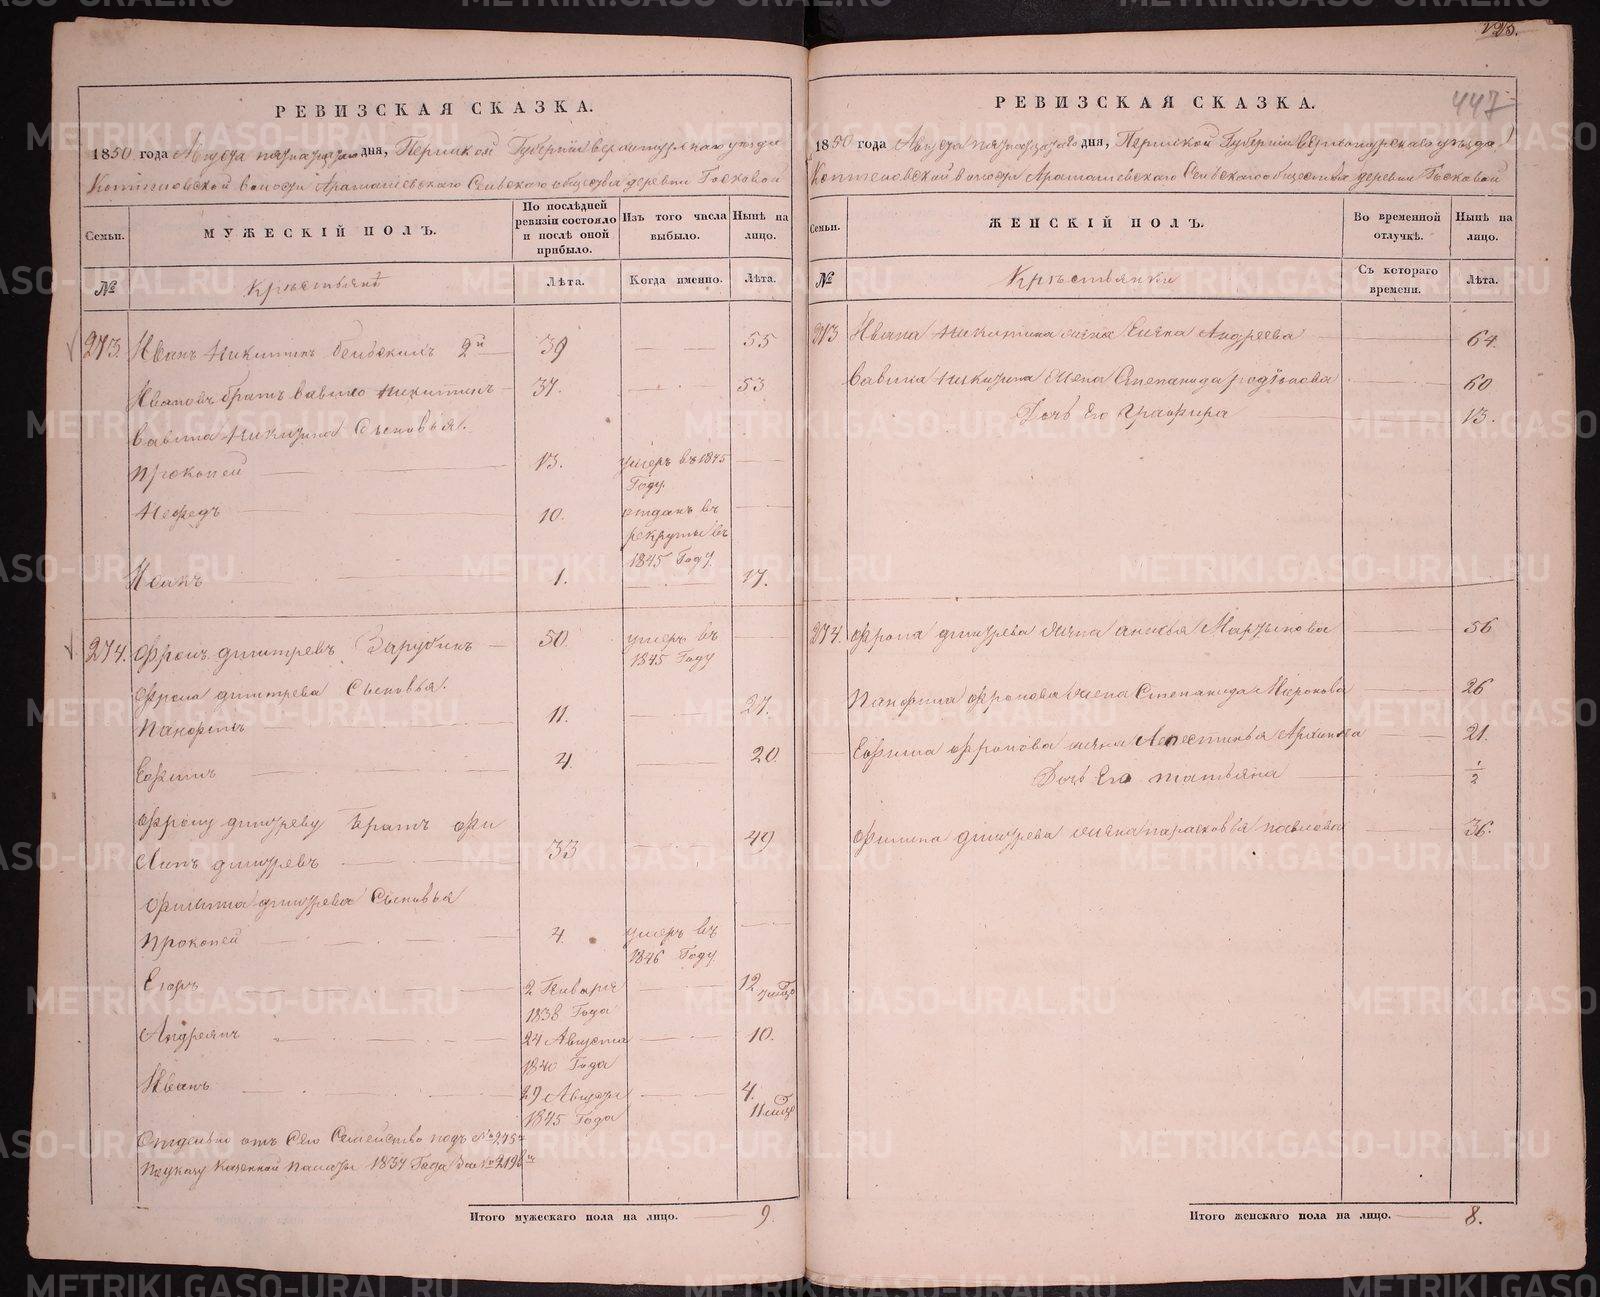 РЕВИЗСКАЯ СКАЗКА.
1850 года Августа пятнатцатаго дня, Пермской Губернии Верхотурскаго уезда
Коптеловской волости Арамашевскаго Сельскаго общества деревни
Семьи.
МУЖЕСКІЙ ПОЛЪ.
По послѣдней ревизіи состояло и послѣ оной прибыло.
Изъ того числа выбыло.
Нынѣ на лицо.
№
Крестьянъ
Лѣта.
Когда именно.
Лѣта.
273. Иванъ Никитинъ 2й 39 55
Ивановъ братъ Вавило Никитинъ 37. 53
Вавила Никитина Сыновья.
Прокопей 13. умеръ въ 1845
Году.
Нефедъ 10. отданъ въ
рекруты въ
1845 Году.
Исакъ 1. 17.
274. Фролъ Дмитревъ Зарубинъ 50. умеръ въ
1845 Году
Фрола Дмитрева Сыновья.
Панфилъ 11. 27.
Ефимъ 4. 20.
Фролу Дмитреву братъ Фи
липъ Дмитревъ 33 49
Филипа Дмитрева Сыновья
Прокопей 4. умеръ въ
1846 Году
Егоръ 2 Генваря 12
1838 Года
Андреянъ 24 Августа 10.
1840 Года
Иванъ 29 4.
1845 Года 11
Отдельно отъ Сего Семейство подъ № 275м
По указу Казенной Палаты 1837 Года
Итого мужескаго пола на лицо. 9.
447
РЕВИЗСКАЯ СКАЗКА.
1850 года Августа пятнатцатаго дня, Пермской Губернии Верхотурскаго уезда
Коптеловской волости Арамашевскаго Сельскаго общества деревни
Семьи.
ЖЕНСКІЙ ПОЛЪ.
Во временной отлучкѣ.
Нынѣ на лицо.
№
Крестьянки
Съ котораго времени.
Лѣта.
273 Ивана Никитина жена Елена Андреева 64.
Вавила Никитина жена Степанида Родіонова 60
Дочь Его Глафира 13.
274. Фрола Дмитрева жена Мартынова 56
Панфила Фролова жена Степанида Миронова 26
Ефима Фролова жена Архипова 21.
Дочь Его Татьяна 1/2
Филипа Дмитрева жена Парасковья Павлова 36.
Итого женскаго пола на лицо. 8.
METRIKI.GASO-URAL.RU